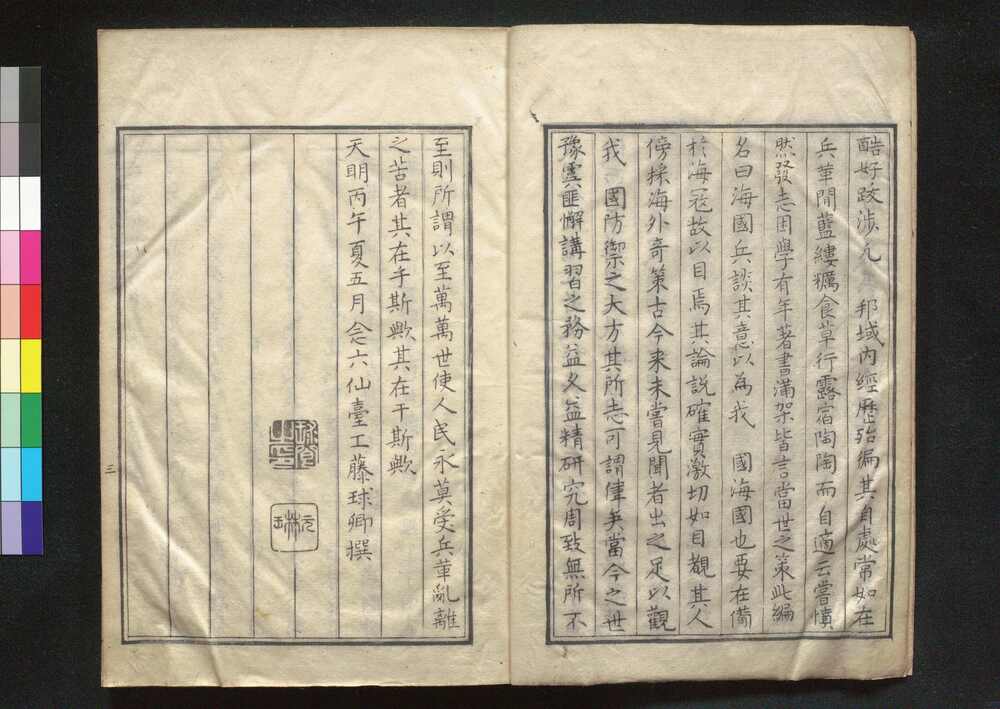 酷好跋渉凡　邦域内經歴殆徧其自處常如在
兵革間藍縷糲食草行露宿陶陶而自適云嘗憤
然發志困學有年著書滿架皆言當世之策此編
名曰海國兵談其意以為我　國海國也要在備
於海冦故以目焉其論説確實激切如目覩其人
傍採海外奇策古今来未嘗見聞者出之足以觀
我　國防禦之大方其所志可謂偉矣當今之世
豫虞匪懈講習之務益久益精研究周致無所不
至則所謂以至萬萬世使人民永莫受兵革亂離
之苦者其在乎斯歟其在于斯歟
天明丙午夏五月念六仙臺工藤球卿撰
球卿之印
元琳
三